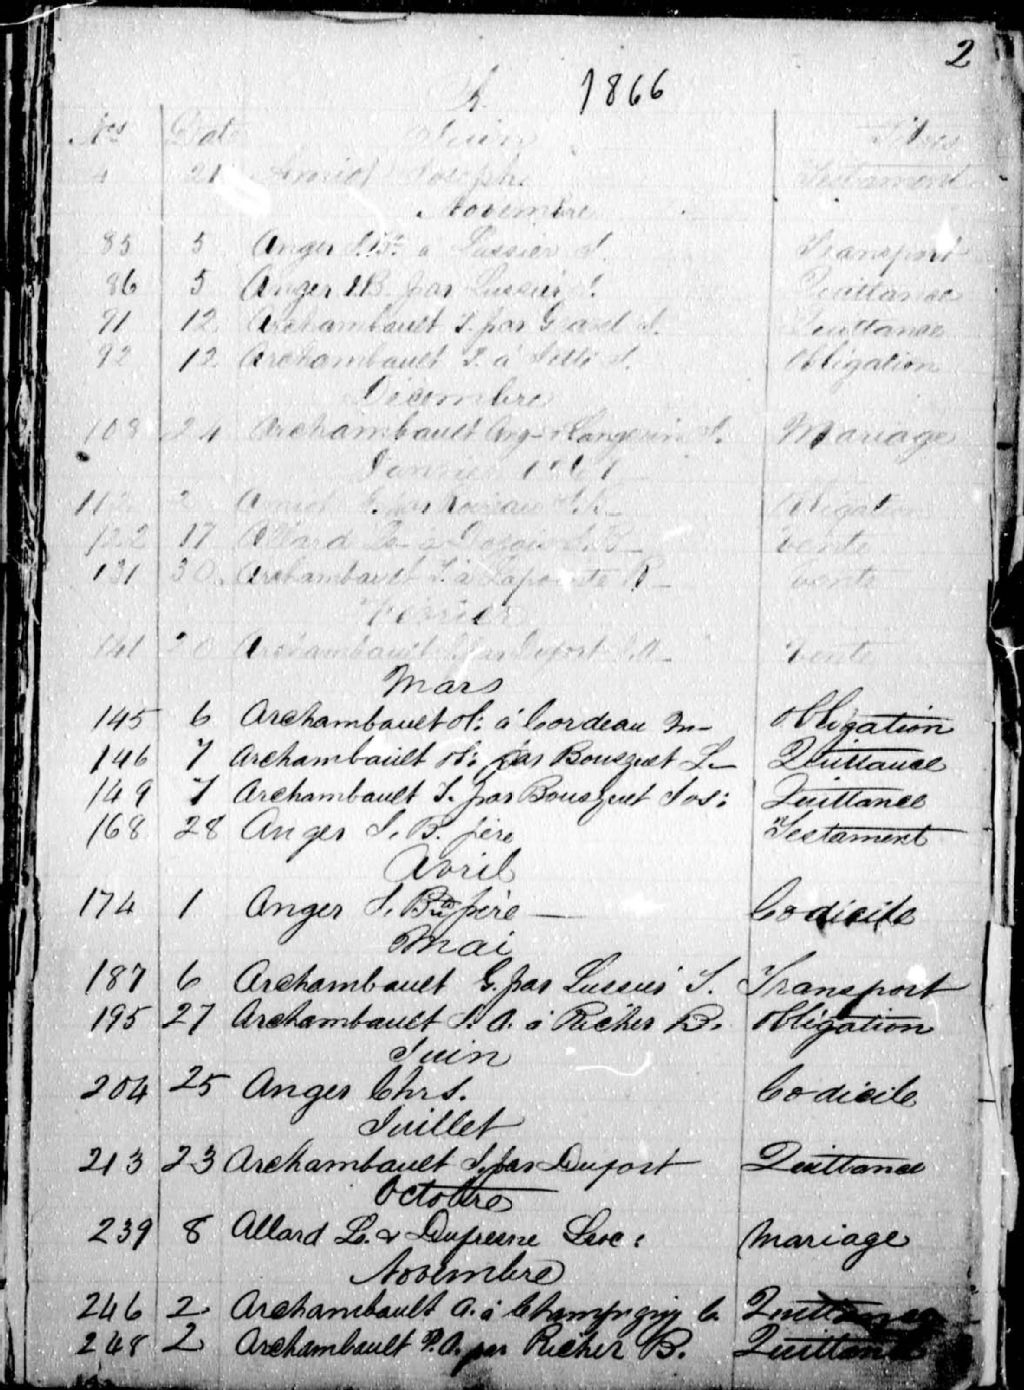 2
A. 1866
Nos Date Juin Titres
4 21 Amiot Joseph Testament
Novembre
85 5 Anger J. Bte à Lussier J. Transport
86 5 Anger J.B. par Lussier J. Quittance
91 12 Archambault J. par J. Quittance
92 12 Archambault J. à J. Obligation
Décembre
108 24 Archambault & Langevin J. Mariage
Janvier 1867
112 2 Obligation
122 17 Allard J.B. Vente
131 30. Archambault J. à Lapointe Vente
Février
141 20 Archambault par Duport J.A. Vente
Mars
145 6 Archambault à Cordeau M Obligation
146 7 Archambault par Bousquet L Quittance
149 7 Archambault J. par Bousquet Jos: Quittance
168 28 Anger J. B. père Testament
Avril
174 1 Anger J. Bte père — Codicile
Mai
187 6 Archambault G. par Lussier J. Transport
195 27 Archambault J. A. à Richer B. Obligation
Juin
204 25 Anger Chrs. Codicile
Juillet
213 23 Archambault J. par Duport Quittance
Octobre
239 8 Allard L. & Dufresne Mariage
Novembre
246 2 Archambault A. à Champigny C. Quittance
248 2 Archambault P.A. par Richer B. Quittance